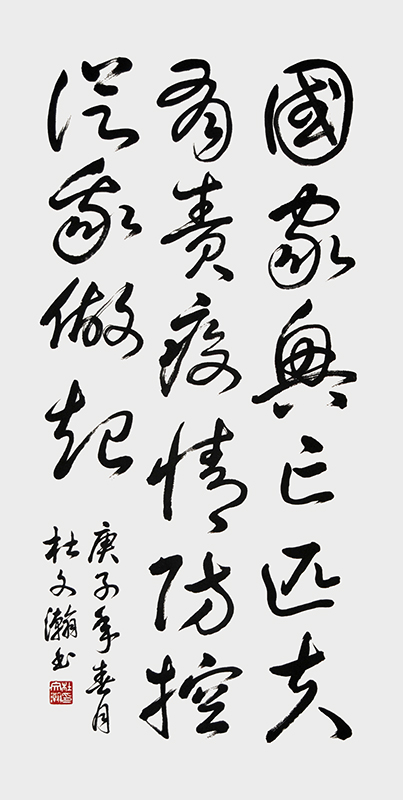 國家興亡匹夫
有責疫情防控
從我做起
庚子年春月
杜文瀚书